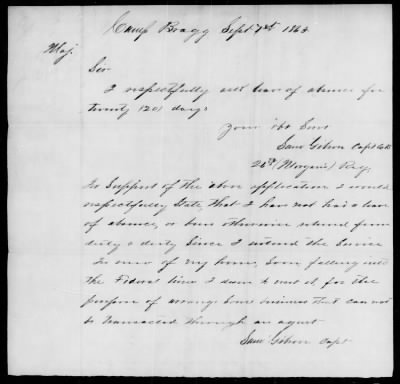 Camp Bragg Sept 7st 1863
Maj.
Sir
I respectfully ask leave of absence for
twenty (20) days
Your obt Servt
Saml Gibson Capt Co
26th (Morgans) Regt
In Support of the above application I would
respectfully State, that I have not had a leave
of absence, or been otherwise relieved from
duty a day Since I entered the Service
In view of my home, Soon falling into
the Federal lines I desire to visit it for the
purpose of arranging Some business that can not
be transacted through an agent
Saml Gibson Capt